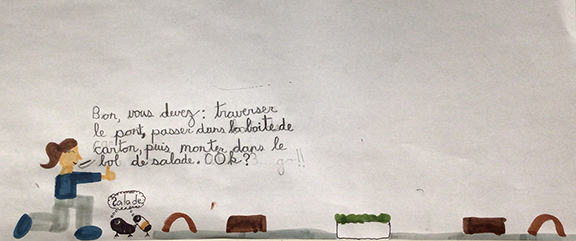 Bon, vous devez: traverser
le pont, passer dans la boîte de
carton, puis, monter dans le
bol de salade. OOk? 3... go!!
Salade